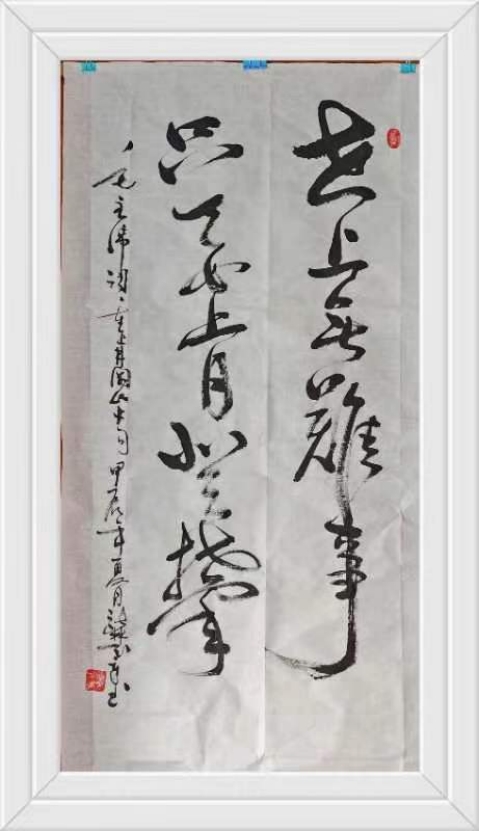 世上无難事
只要肯登攀
毛主席词重上井岡山中句甲辰年夏月